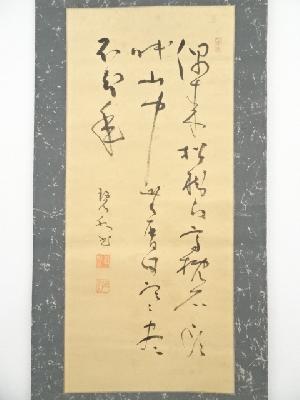 偶来松樹下高枕石頭
眠山中無暦日寒尽
不知年